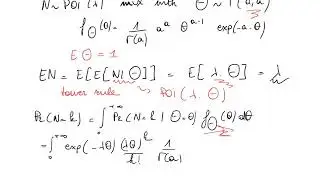 N ~ POI(λ) mix with Θ ~ Γ(a,a)
f_Θ(θ) = 1/Γ(a) a^a θ^(a-1) exp(-a·θ)
EΘ = 1
EN = E[E[N|Θ]] = E[λ·Θ] = λ
tower rule POI(λΘ)
Pr(N=k) = ∫_0^{+∞} Pr(N=k | Θ=θ) f_Θ(θ) dθ
= ∫_0^{+∞} exp(-λθ) (λθ)^k/k! 1/Γ(a)